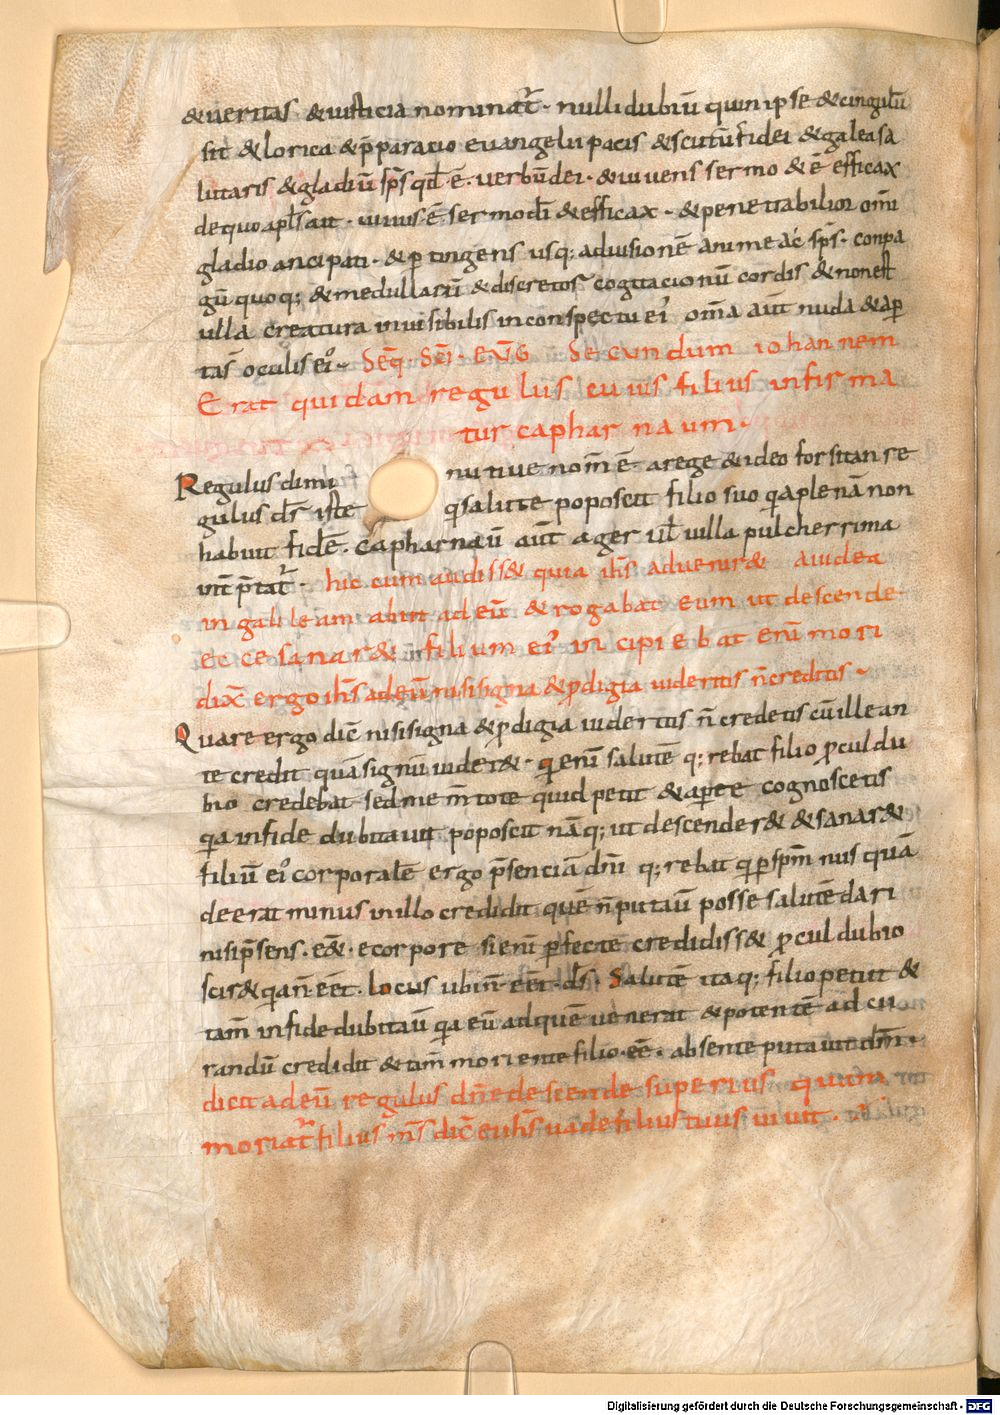 & ueritas & iusticia nominat̄. nulli dubiū quin ipse & cingulū
sit & lorica & p̄paratio euangelii pacis & scutū fidei & galea sa
lutaris & gladiū sp̄s qd̄ ē. uerbū dei. & uiuens sermo & ē efficax
de quo apl̄s ait. uiuus ē sermo dī & efficax. & penetrabilior om̄i
gladio ancipiti. & ꝑtingens usq; ad uisionē anime ac sp̄s. conpa
gū quoq; & medullarū & discretor cogitacionū cordis & non est
ulla creatura inuisibilis in conspectu ei' om̄a aūt nuda & aꝑ
ta s̄ oculis ei'. Seq̄. sc̄i. eūḡ secundum iohannem
Erat quidam regulus cuius filius infirma
tur capharnaum.
Regulus dimi nutiue nom̄ ē a rege & ideo forsitan re
gulus dr̄ iste q; salutē poposcit filio suo qa plenā non
habuit fidē. capharnaū aūt ager ut̄ uilla pulcherrima
int̄p̄tat̄. hic cum audiss& quia ih̄s aduenir& a iudea
in galileam abiit ad eū & rogabat eum ut descende
ec ce sanar& filium ei' incipiebat enī mori
dix̄ ergo ih̄s ad eū nisi signa & ꝓdigia uideritis n̄ creditis
Quare ergo dic̄ nisi signa & ꝓdigia uideritis n̄ credetis cū ille an
te credit quā signū uider&. qi enī salutē q;rebat filio ꝓcul du
bio credebat sed mem̄tote quid petit & aperte cognoscetis
qa in fide dubitauit poposcit nāq; ut descender& & sanar&
filiū ei' corporalē ergo p̄senciā dn̄i q;rebat qi ꝑ sp̄m nusquā
deerat minus in illo credidit quē n̄ putaū posse salutē dari
nisi p̄sens. e&. e corpore si enī ꝑfecte credidiss& ꝓcul dubio
scir& qa n̄ eēt. locus ubi n̄ eēt. ds̄. Salutē itaq; filio petiit &
tam̄ in fide dubitaū qa eū ad quē uenerat & potentē ad cu
randū credidit & tam̄ moriente filio eē. absente putauit dn̄m.
dicit ad eū regulus dn̄e descende superius quam
moriat̄ filius m̄s dic̄ ei ih̄s uade filius tuus uiuit.
Digitalisierung gefördert durch die Deutsche Forschungsgemeinschaft - DFG